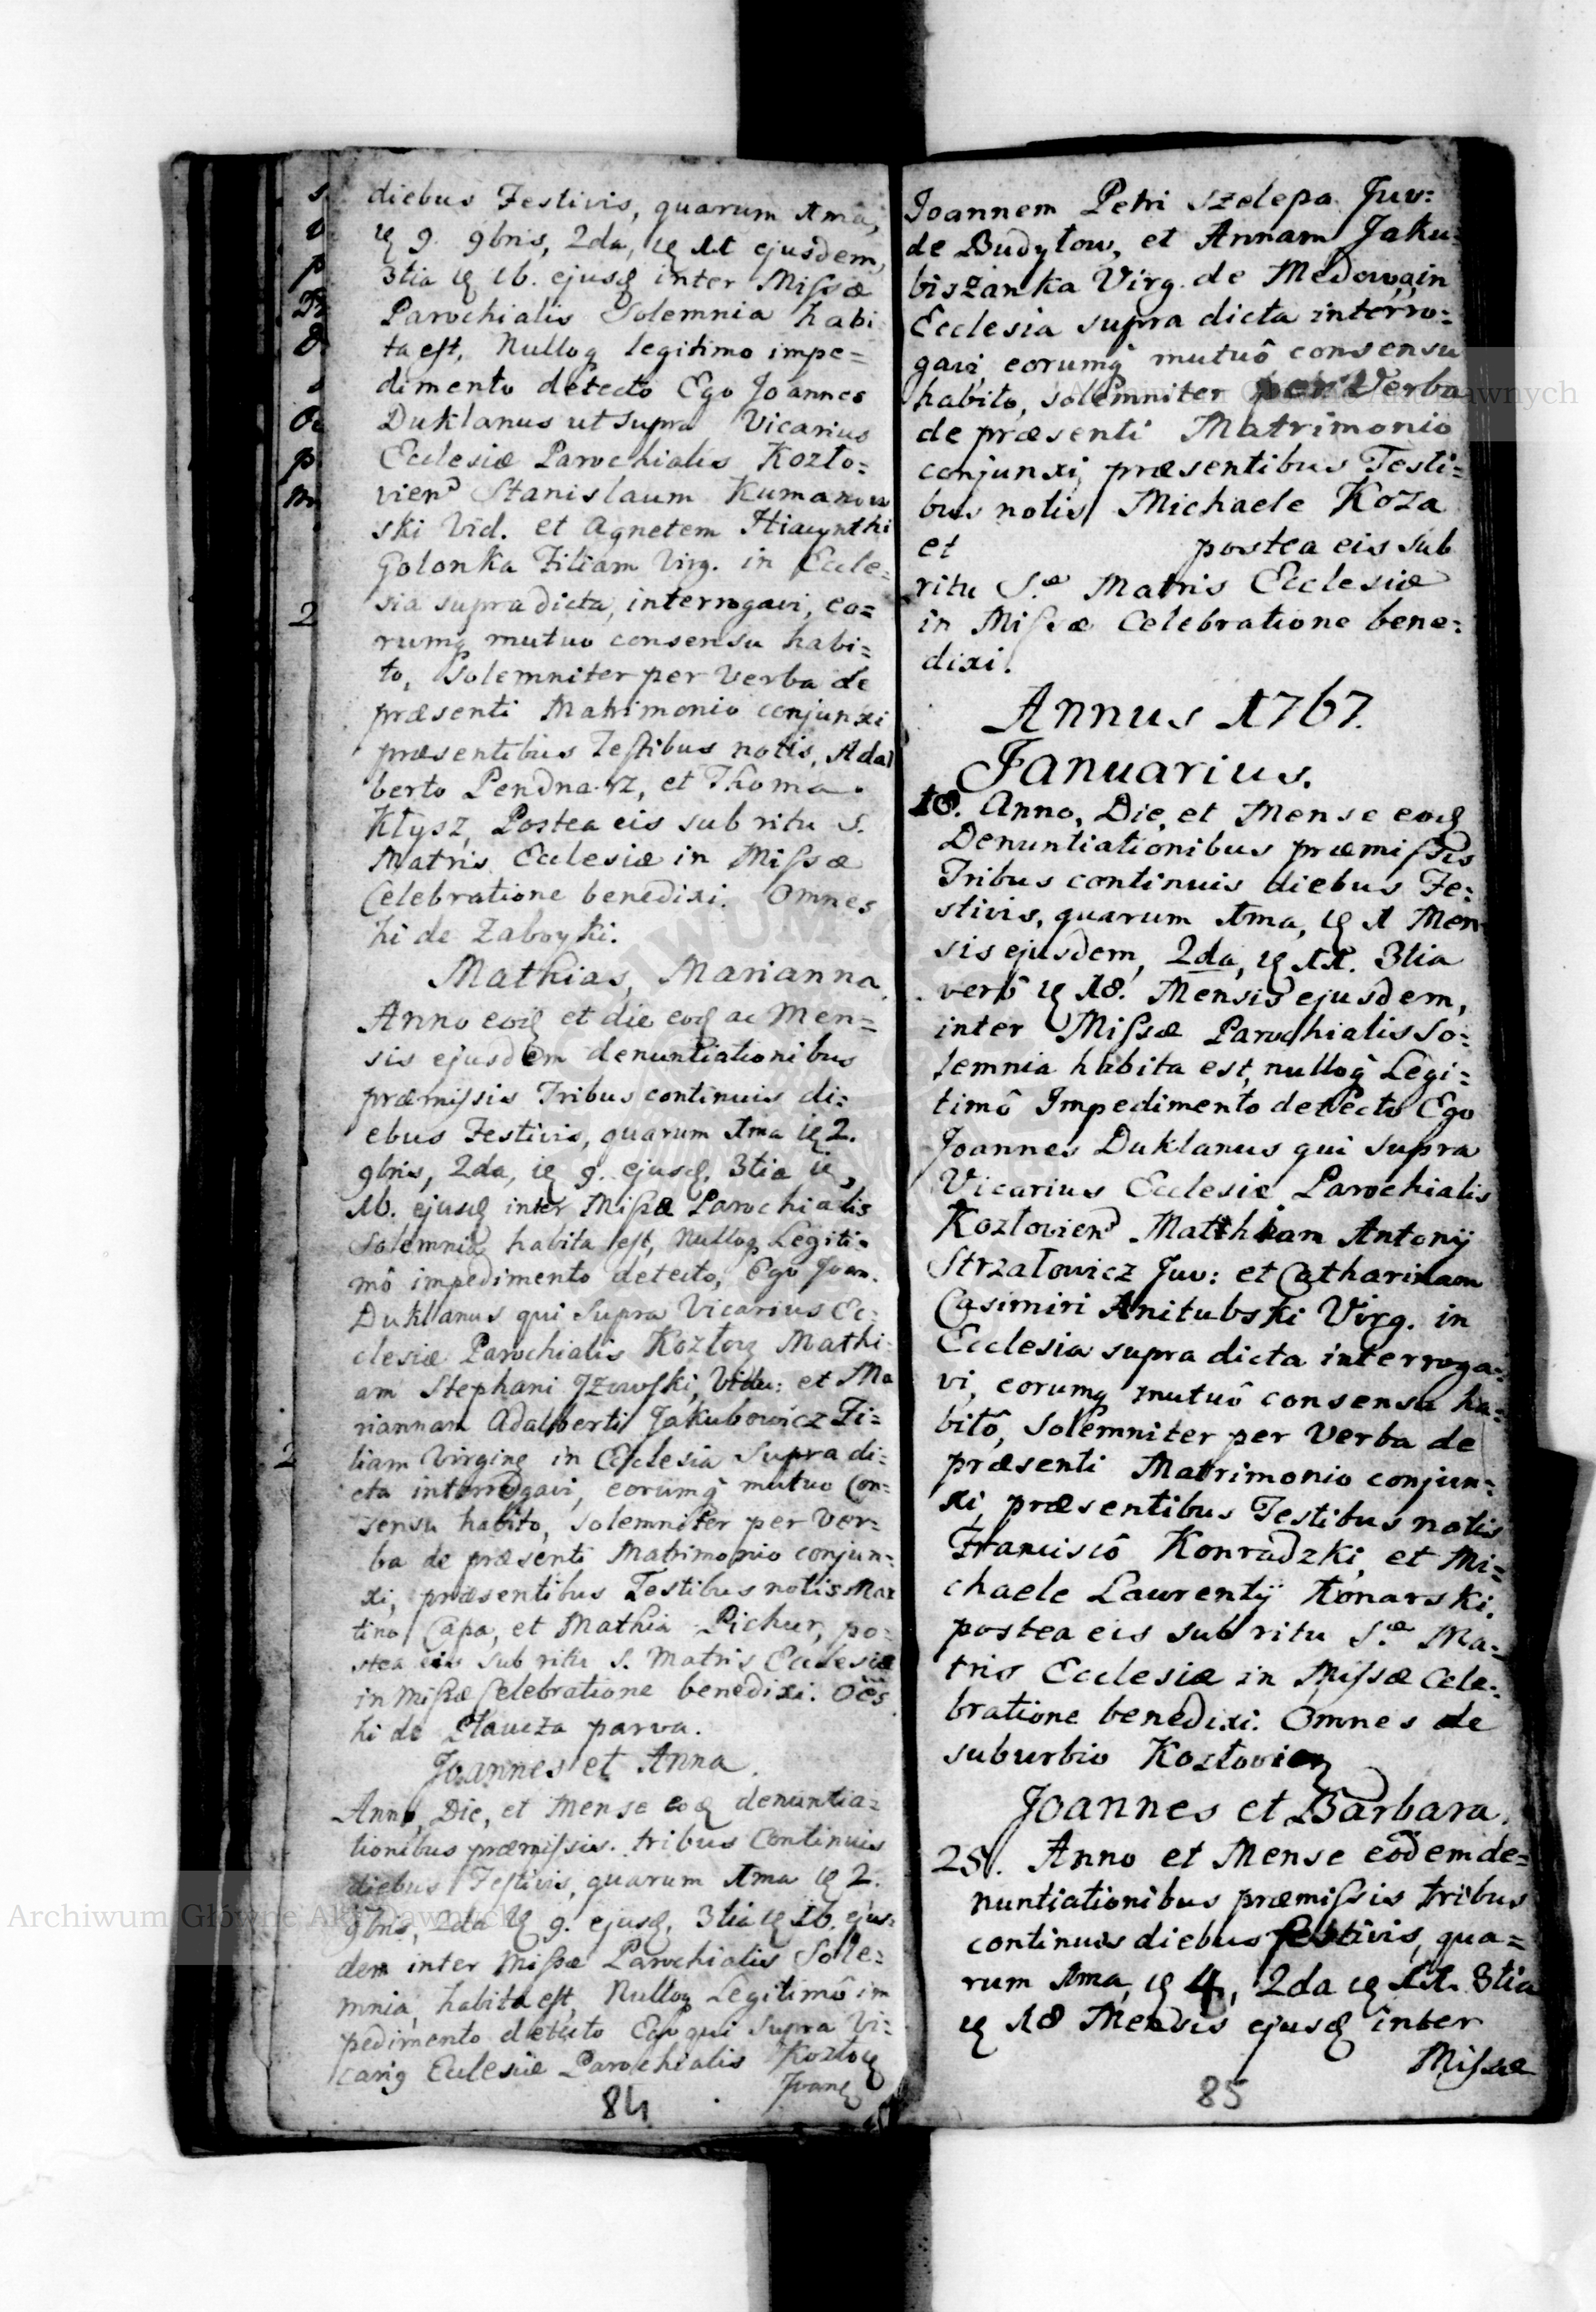 diebus Festivis, quarum 1ma,
ię 9. 9bris, 2da, ię 11 ejusdem,
3tia ię 16. ejusd inter Missæ
Parochialis Solemnia habi=
ta est, Nulloq legitimo impe=
dimento detecto Ego Joannes
Duklanus ut supra Vicarius
Ecclesiæ Parochialis Kozło=
viens Stanislaum Kumanow
ski Vid. et Agnetem Hiacynthi
Golonka Filiam Virg. in Eccle=
sia supradicta, interrogavi, eo=
rumq mutuo consensu habi=
to, Solemniter per Verba de
præsenti Matrimonio conjunxi
præsentibus Testibus notis, Adal
berto Pendnarz, et Thoma
Kłysz, Postea eis sub ritu S.
Matris Ecclesiæ in Missæ
Celebratione benedixi. Omnes
hi de Zaboyki.
Mathias, Marianna.
Anno eod et die eod ac Men=
sis ejusdem denuntiationibus
præmissis Tribus continuis di=
ebus Festivis, quarum 1ma ię 2.
9bris, 2da, ię 9. ejusd, 3tia ię,
16. ejusd inter Missæ Parochialis
Solemnia habita est, Nulloq Legiti=
mô impedimento detecto, Ego Joan.
Duklanus qui Supra Vicarius Ec=
clesiæ Parochialis Kozłoię Mathi=
am Stephani Jzowski, Vidu: et Ma
riannam Adalberti Jakubowicz Fi=
liam Virgine in Ecclesia Supra di=
cta interrogavi, eorumq mutuo Con=
sensu habito, solemniter per Ver=
ba de præsenti Matrimonio conjun=
xi, præsentibus Testibus notis Mar
tino Capa, et Mathia Pichur, po=
stea eis sub ritu S. Matris Ecclesiæ
in Missæ Celebratione benedixi. Oes
hi de Płaucza parva.
Joannes et Anna.
Anno, Die, et Mense eod denuntia=
tionibus præmissis tribus Continuis
diebus Festivis, quarum 1ma ię 2.
9bris, 2da ię 9. ejusd, 3tia ię 16. ejus=
dem inter Missæ Parochialis Sole=
mnia, habita est, Nulloq Legitimô im
pedimento detecto Ego qui Supra Vi=
carig Ecclesiæ Parochialis Kozłoię
Joanę
84
Joannem Petri Szelepa Juv:
de Budyłow, et Annam Jaku=
biszanka Virg. de Medowa, in
Ecclesia supra dicta interro=
gavi eorumq mutuô consensu
habito, solemniter per Verba
de præsenti Matrimonio
conjunxi, præsentibus Testi=
bus notis Michaele Koza
et postea eis sub
ritu S.æ Matris Ecclesiæ
in Missæ Celebratione bene=
dixi.
Annus 1767.
Januarius.
18. Anno, Die, et Mense eod
Denuntiationibus præmissis
Tribus continuis diebus Fe=
stivis, quarum 1ma, ię 1 Men
sis ejusdem, 2da, ię 11. 3tia
verô ię 18. Mensis ejusdem,
inter Missæ Parochialis So=
lemnia habita est, nulloq Legi=
timô Impedimento detecto Ego
Joannes Duklanus qui supra
Vicarius Ecclesiæ Parochialis
Kozłoviens Matthiam Antonij
Strzałowicz Juv: et Catharinam
Casimiri Anitubski Virg. in
Ecclesia supra dicta interroga=
vi, eorumq mutuô consensu ha=
bitô, Solemniter per Verba de
præsenti Matrimonio conjun=
xi, præsentibus Testibus notis
Franciscô Konradzki, et Mi=
chaele Laurentij Konarski,
postea eis sub ritu S.æ Ma=
tris Ecclesiæ in Missæ Cele=
bratione benedixi. Omnes de
suburbio Kozłovien
Joannes et Barbara.
25. Anno et Mense eôdem de=
nuntiationibus præmissis tribus
continuis diebus festivis, qua=
rum 1ma, ię 4, 2da ię 11. 3tia
ię 18 Mensis ejusd inter
Missæ
85